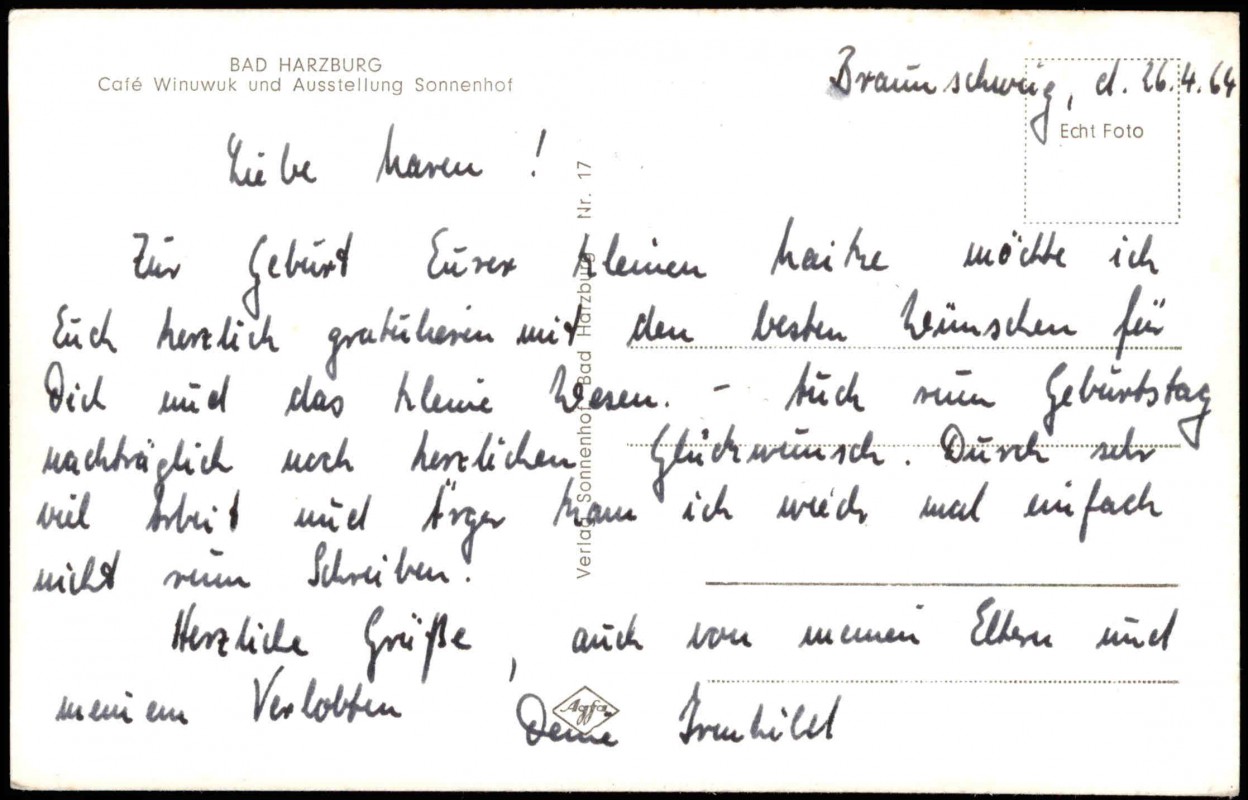 BAD HARZBURG
Café Winuwuk und Ausstellung Sonnenhof
Braunschweig, d. 26.4.64
Echt Foto
Liebe Maren!
Zur Geburt Eurer kleinen Maike möchte ich
Euch herzlich gratulieren mit den besten Wünschen für
Dich und das kleine Wesen. – Auch zum Geburtstag
nachträglich noch herzlichen Glückwunsch. Durch sehr
viel Arbeit und Ärger kam ich mal einfach
nicht zum Schreiben.
Herzliche Grüße, auch von meinen Eltern und
meinem Verlobten
Deine Irmhild
Verlag Sonnenhof Bad Harzburg Nr. 17
Agfa